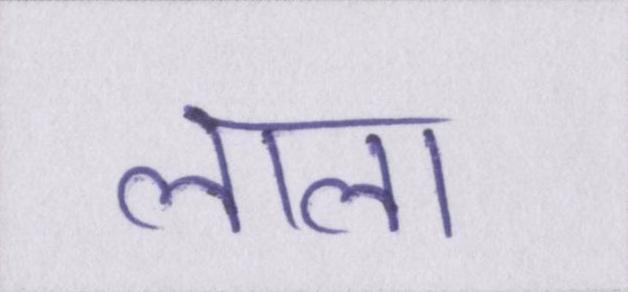 लाला